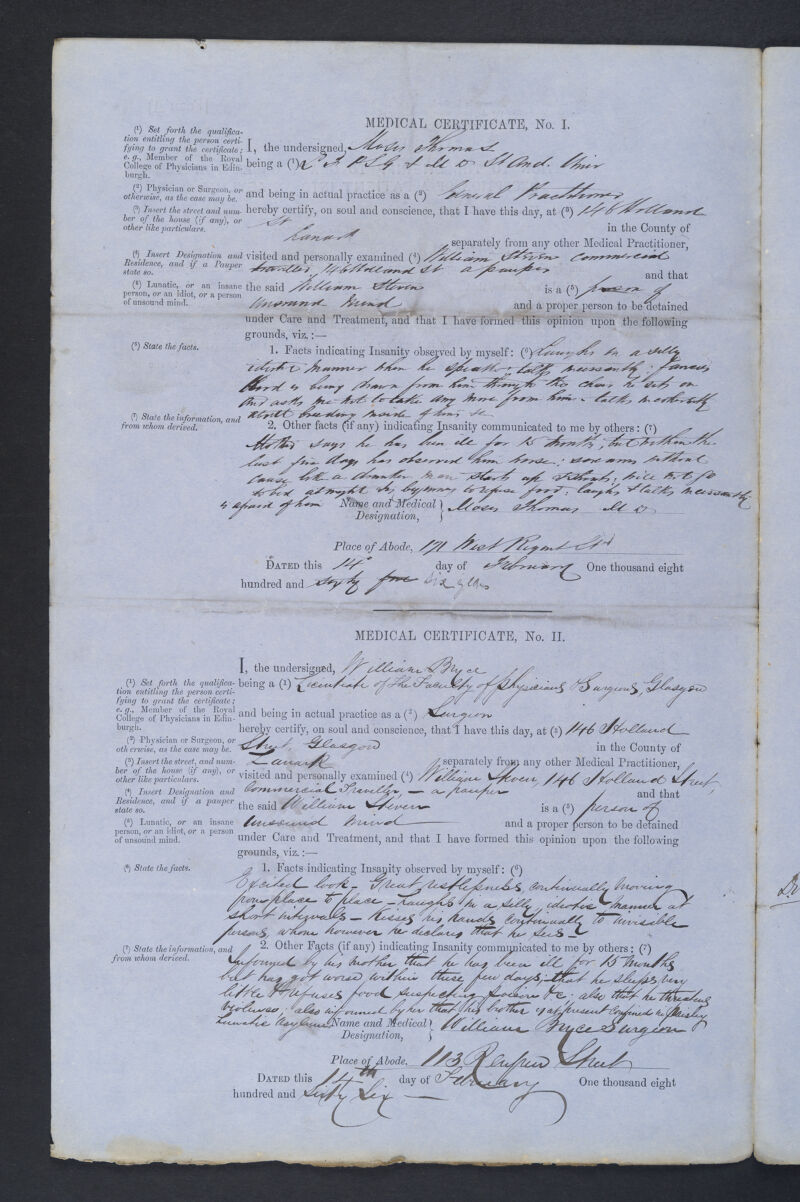 MEDICAL CERTIFICATE, No. I.
(¹) Set forth the qualifica-
tion entitling the person certi-
fying to grant the certificate;
e. g., Member of the Royal
College of Physicians in Edin-
burgh.
I, the undersigned, Moses Thomas
being a (¹) L F P S G & M D St And. Univ
(²) Physician or Surgeon, or
otherwise, as the case may be.
and being in actual practice as a (²) General Practitioner
(³) Insert the street and num-
ber of the house (if any), or
other like particulars.
hereby certify, on soul and conscience, that I have this day, at (³) 146 Holland
St in the County of
Lanark separately from any other Medical Practitioner,
(⁴) Insert Designation and
Residence, and if a Pauper
state so.
visited and personally examined (⁴) William Steven commercial
traveller, 146 Holland St a pauper and that
(⁵) Lunatic, or an insane
person, or an idiot, or a person
of unsound mind.
the said William Steven is a (⁵) person of
unsound mind and a proper person to be detained
under Care and Treatment, and that I have formed this opinion upon the following
grounds, viz.:—
(⁶) State the facts.
1. Facts indicating Insanity observed by myself: (⁶) Laughs in a silly
idiotic manner when he speaks; talks incessantly; fancies
blood is being drawn from him through the chair he sits on
and asks me not to take any more from him - talks incoherently
about breeding inside of him &c
(⁷) State the information, and
from whom derived.
2. Other facts (if any) indicating Insanity communicated to me by others: (⁷)
Mother says he has been ill for 15 months; but within the
last five days has observed him worse; screams without
cause like a drunken man starts up & shouts; will not go
to bed at night & by now to refuse food; laughs & talks incessantly
is afraid of him
Name and Medical Designation, Moses Thomas M D
Place of Abode, 171 West Regent St
DATED this 14th day of February One thousand eight
hundred and sixty five six years
MEDICAL CERTIFICATE, No. II.
I, the undersigned, William Bryce
(¹) Set forth the qualifica-
tion entitling the person certi-
fying to grant the certificate;
e. g., Member of the Royal
College of Physicians in Edin-
burgh.
being a (¹) Licentiate of the Faculty of Physicians & Surgeons, Glasgow
and being in actual practice as a (²) Surgeon
(²) Physician or Surgeon, or
otherwise, as the case may be.
hereby certify, on soul and conscience, that I have this day, at (³) 146 Holland
Street, Glasgow in the County of
(³) Insert the street, and num-
ber of the house (if any), or
other like particulars.
Lanark separately from any other Medical Practitioner,
visited and personally examined (⁴) William Steven, 146 Holland Street,
(⁴) Insert Designation and
Residence, and if a pauper
state so.
Commercial Traveller, — a pauper and that
the said William Steven is a (⁵) person of
(⁵) Lunatic, or an insane
person, or an idiot, or a person
of unsound mind.
unsound mind and a proper person to be detained
under Care and Treatment, and that I have formed this opinion upon the following
grounds, viz.:—
(⁶) State the facts.
1. Facts indicating Insanity observed by myself: (⁶)
Excited look - Great restlessness continually moving
from place to place - Laughs in a silly, idiotic manner at
short intervals - Kisses his hands continually to invisable
persons whom however he declares that he sees -
(⁷) State the information, and
from whom derived.
2. Other Facts (if any) indicating Insanity communicated to me by others: (⁷)
Informed by his mother that he has been ill for 15 months
but has got worse within these few days; that he sleeps very
little & refuses food suspecting poison &c; also that he threatens
violence; also informed by her that his brother is at present confined in Paisley
Lunatic Asylum
Name and Medical Designation, William Bryce Surgeon
Place of Abode, 113 Renfrew Street
DATED this 14th day of February One thousand eight
hundred and Sixty Six —